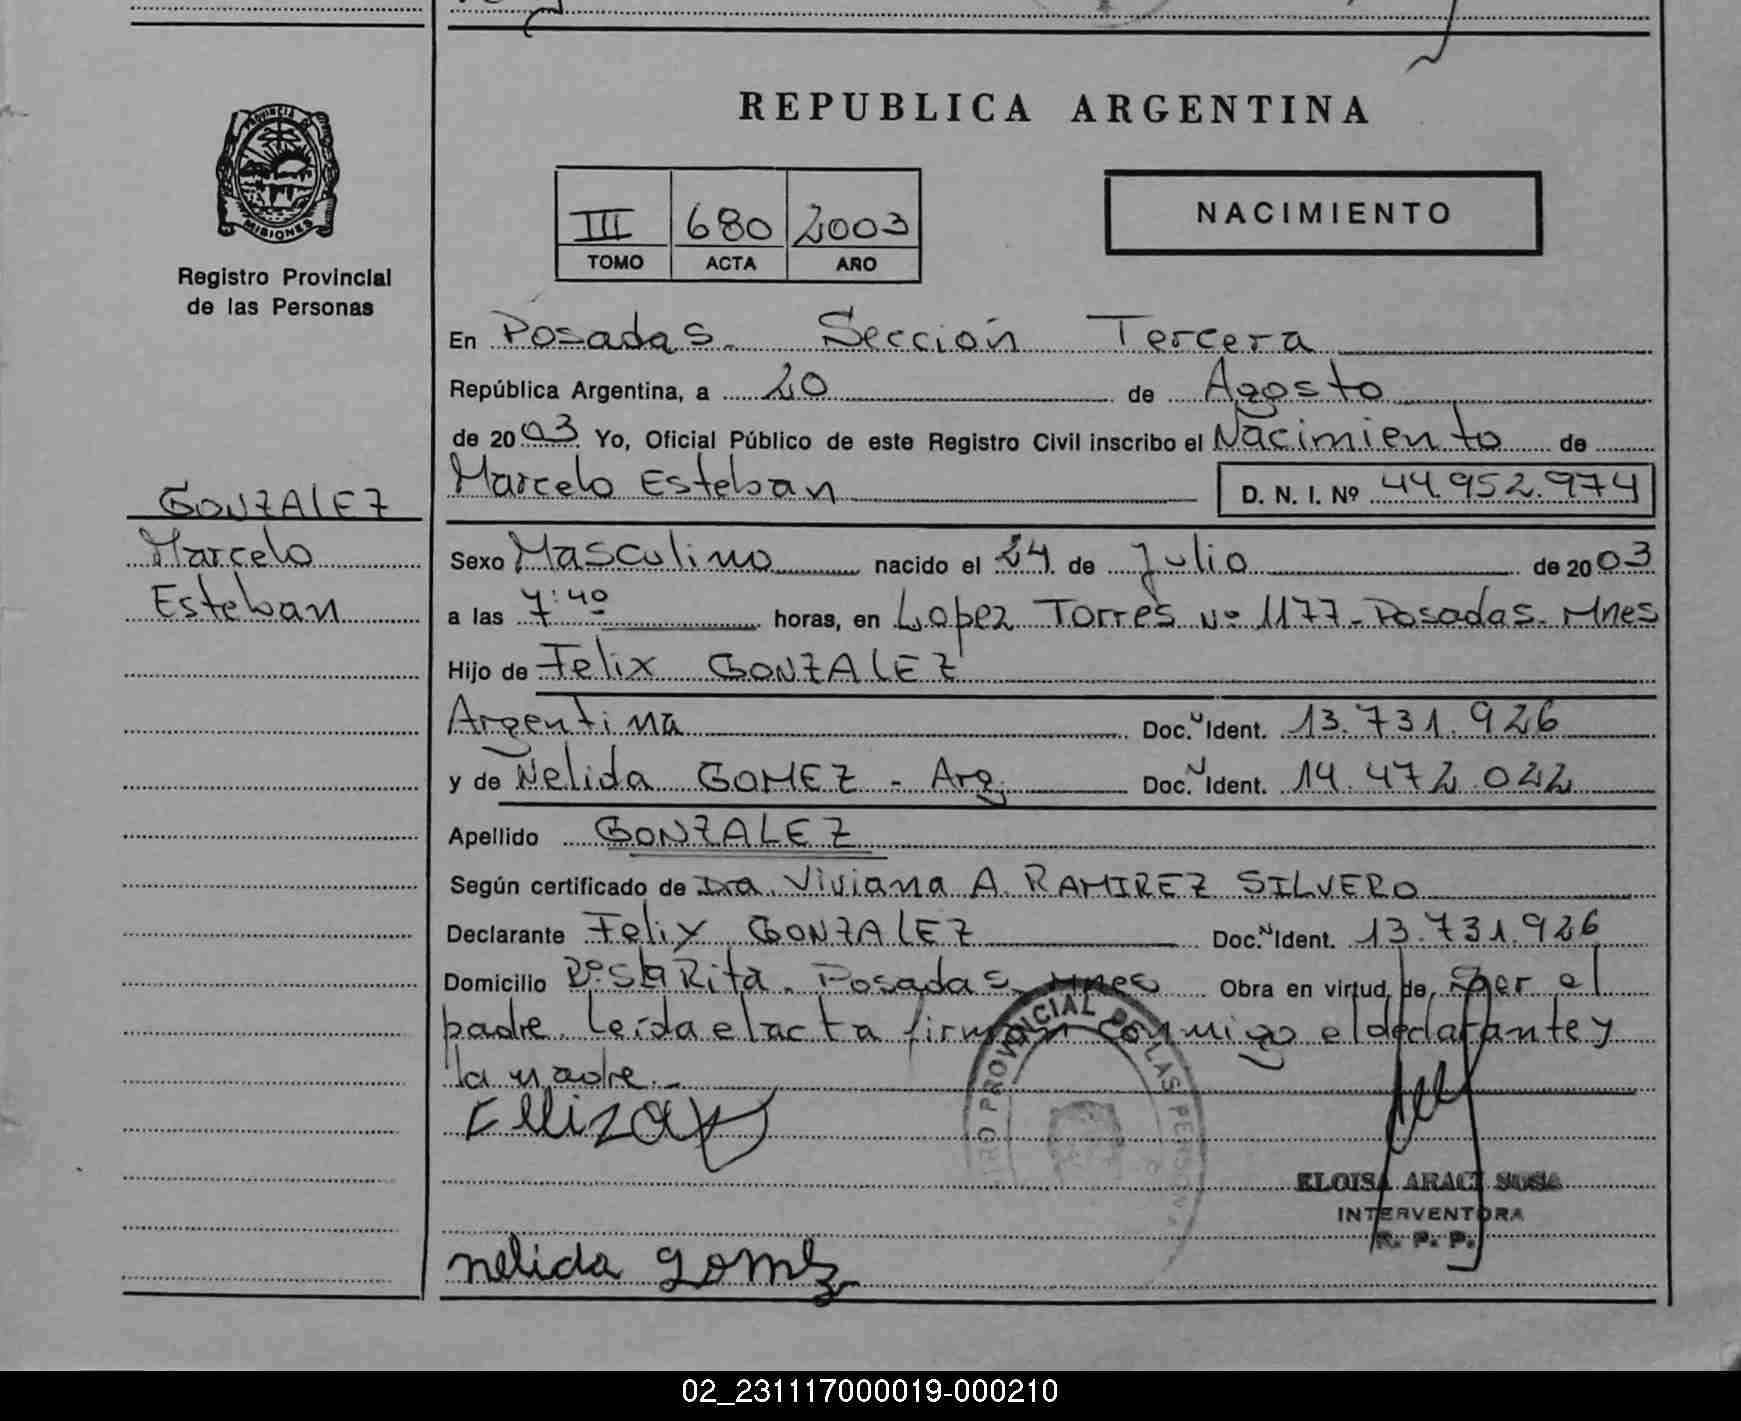 REPUBLICA ARGENTINA
PROVINCIA DE MISIONES
Registro Provincial
de las Personas
III 680 2003
TOMO ACTA AÑO
NACIMIENTO
En Posadas. Sección Tercera
República Argentina, a 20 de Agosto
de 2003 Yo, Oficial Público de este Registro Civil inscribo el Nacimiento de
Marcelo Esteban D. N. I. Nº 44.952.974
GONZALEZ
Marcelo
Esteban
Sexo Masculino nacido el 24 de Julio de 2003
a las 7:40 horas, en Lopez Torres Nº 1177 - Posadas. Mnes
Hijo de Felix GONZALEZ
Argentina Doc. N Ident. 13.731.926
y de Nelida GOMEZ - Arg. Doc. N Ident. 14.472.022
Apellido GONZALEZ
Según certificado de Dra. Viviana A. RAMIREZ SILVERO
Declarante Felix GONZALEZ Doc. N Ident. 13.731.926
Domicilio Bº Sta Rita. Posadas. Mnes Obra en virtud de Ser el
padre. Leída el acta firman conmigo el declarante y
la madre.-
PROVINCIAL DE LAS PERSONAS
ELOISA ARACI SOSA
INTERVENTORA
R. P. P.
nelida gomez
02_231117000019-000210